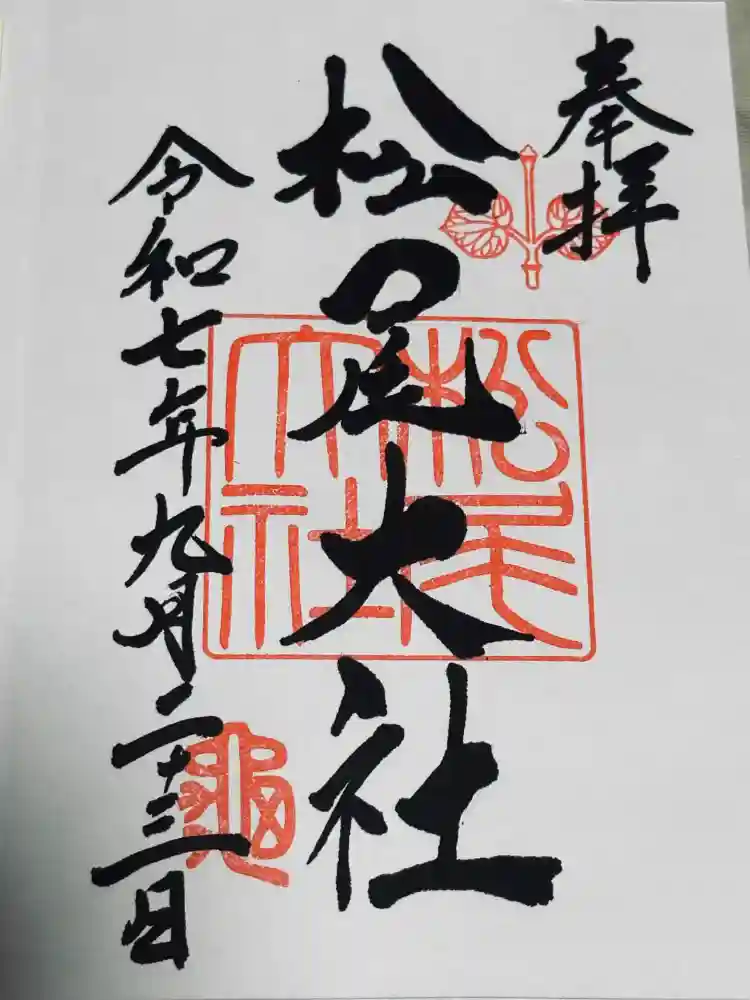 奉拝
松尾大社
令和七年九月二十三日
松尾大社
亀